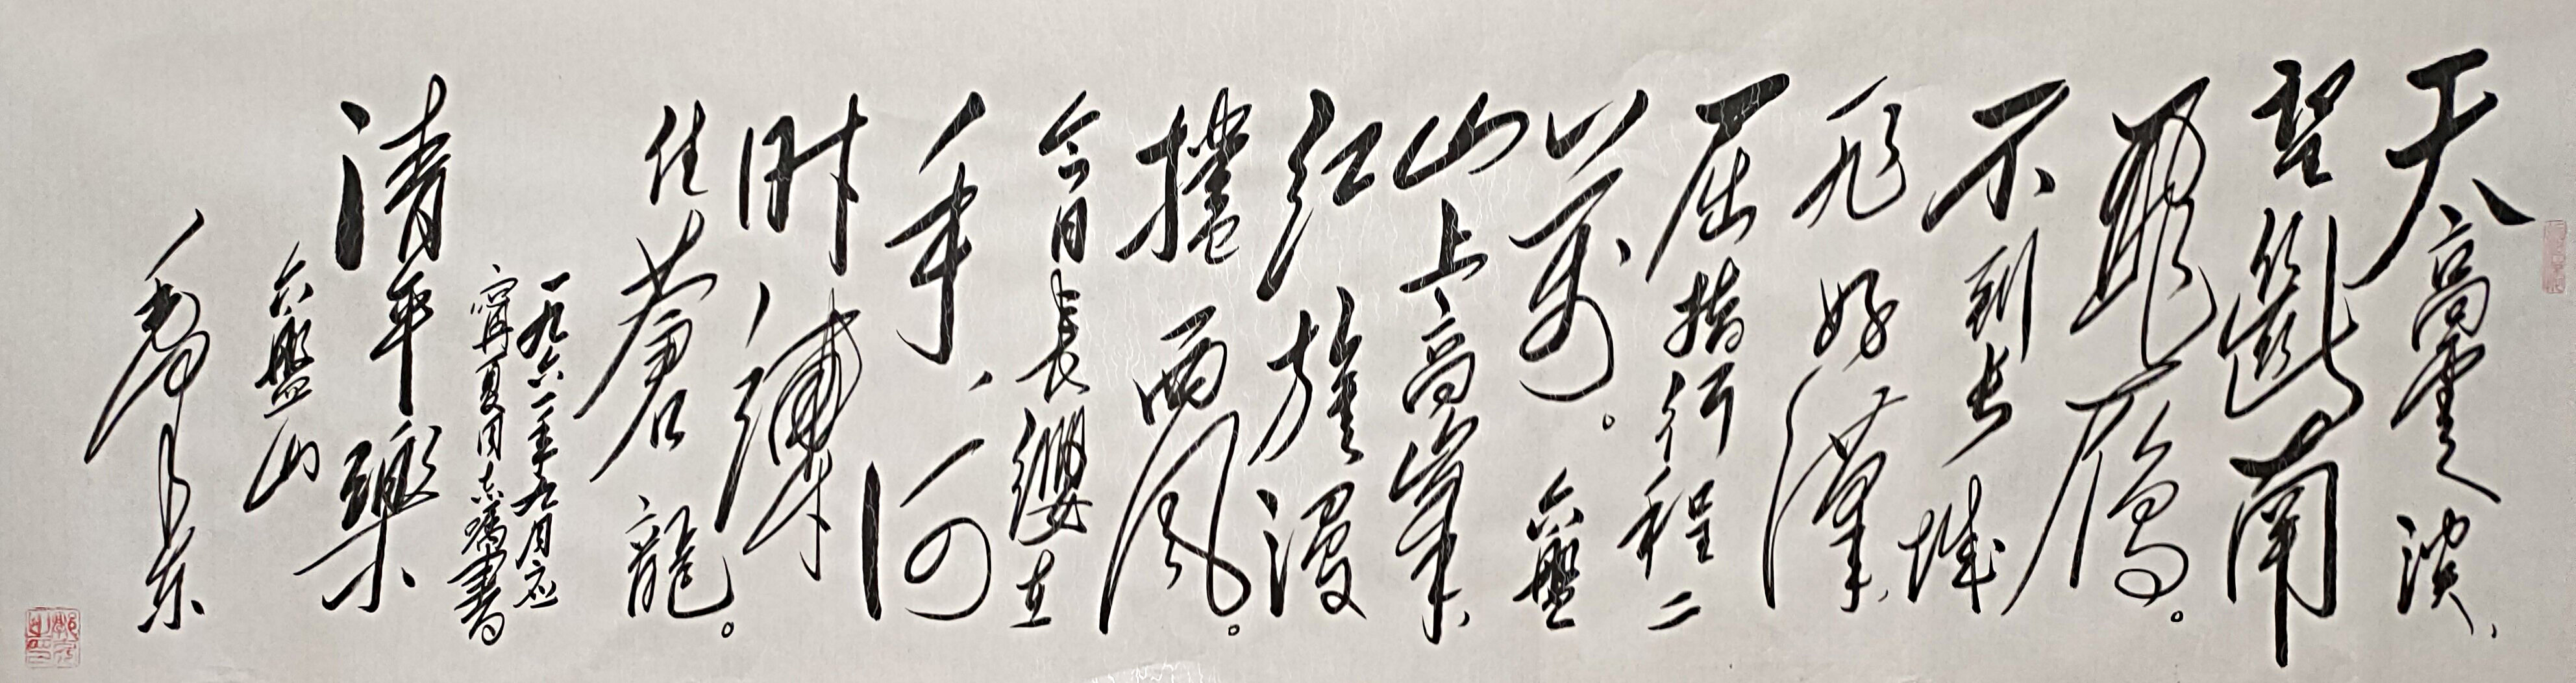 天高雲淡、
望斷南
飛雁。
不到長城
非好漢、
屈指行程二
萬。六盤
山上高峯、
紅旗漫
捲西風。
今日長纓在
手、何
时縛
住蒼龍。
一九六一年九月应
寧夏同志囑書
清平樂
六盤山
毛泽东